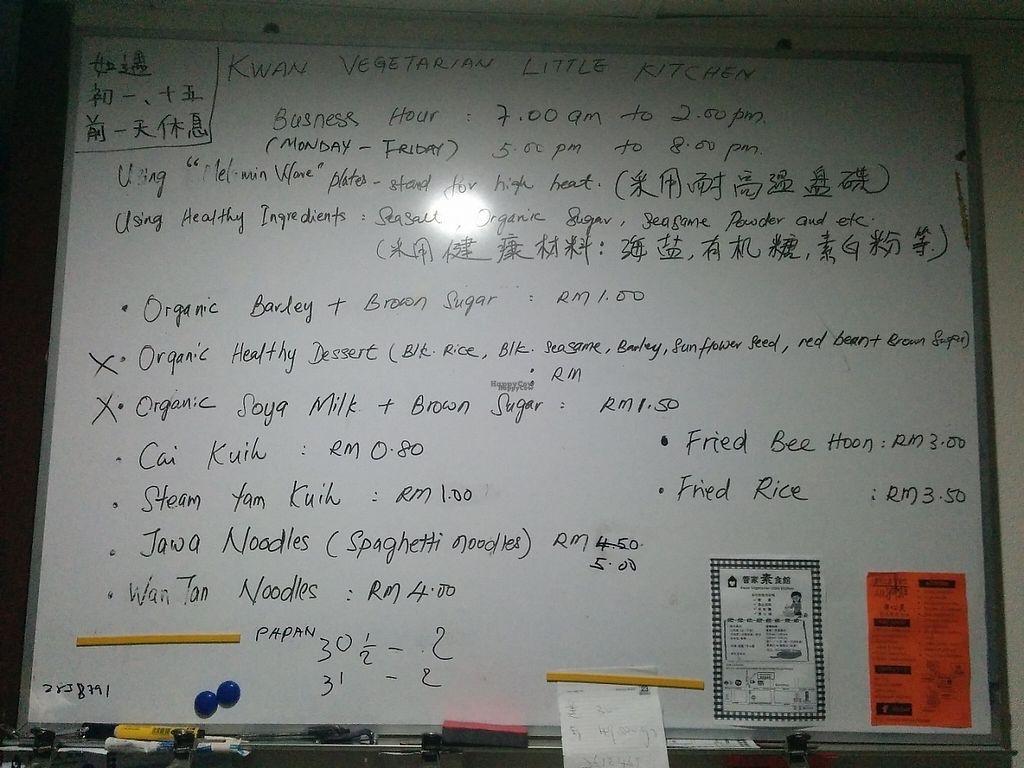 如遇
初一、十五
前一天休息
KWAN VEGETARIAN LITTLE KITCHEN
Busness Hour : 7.00 am to 2.00 pm.
(MONDAY - FRIDAY) 5.00 pm to 8.00 pm.
Using "Mel-min Ware" plates - stand for high heat. (采用耐高温盘碟)
Using Healthy Ingredients : Seasalt, Organic Sugar, Seasame Powder and etc.
(采用健康材料: 海盐,有机糖,素白粉等.)
• Organic Barley + Brown Sugar : RM 1.00
X • Organic Healthy Dessert (Blk. Rice, Blk. Seasame, Barley, Sunflower Seed, red bean + Brown Sugar)
: RM
X • Organic Soya Milk + Brown Sugar : RM 1.50
• Cai Kuih : RM 0.80
• Fried Bee Hoon : RM 3.00
• Steam Yam Kuih : RM 1.00
• Fried Rice : RM 3.50
• Jawa Noodles (Spaghetti noodles) RM 4.50
5.00
• Wan Tan Noodles : RM 4.00
PAPAN 30 1/2 - 2
31 - 2
管家素食館
HappyCow